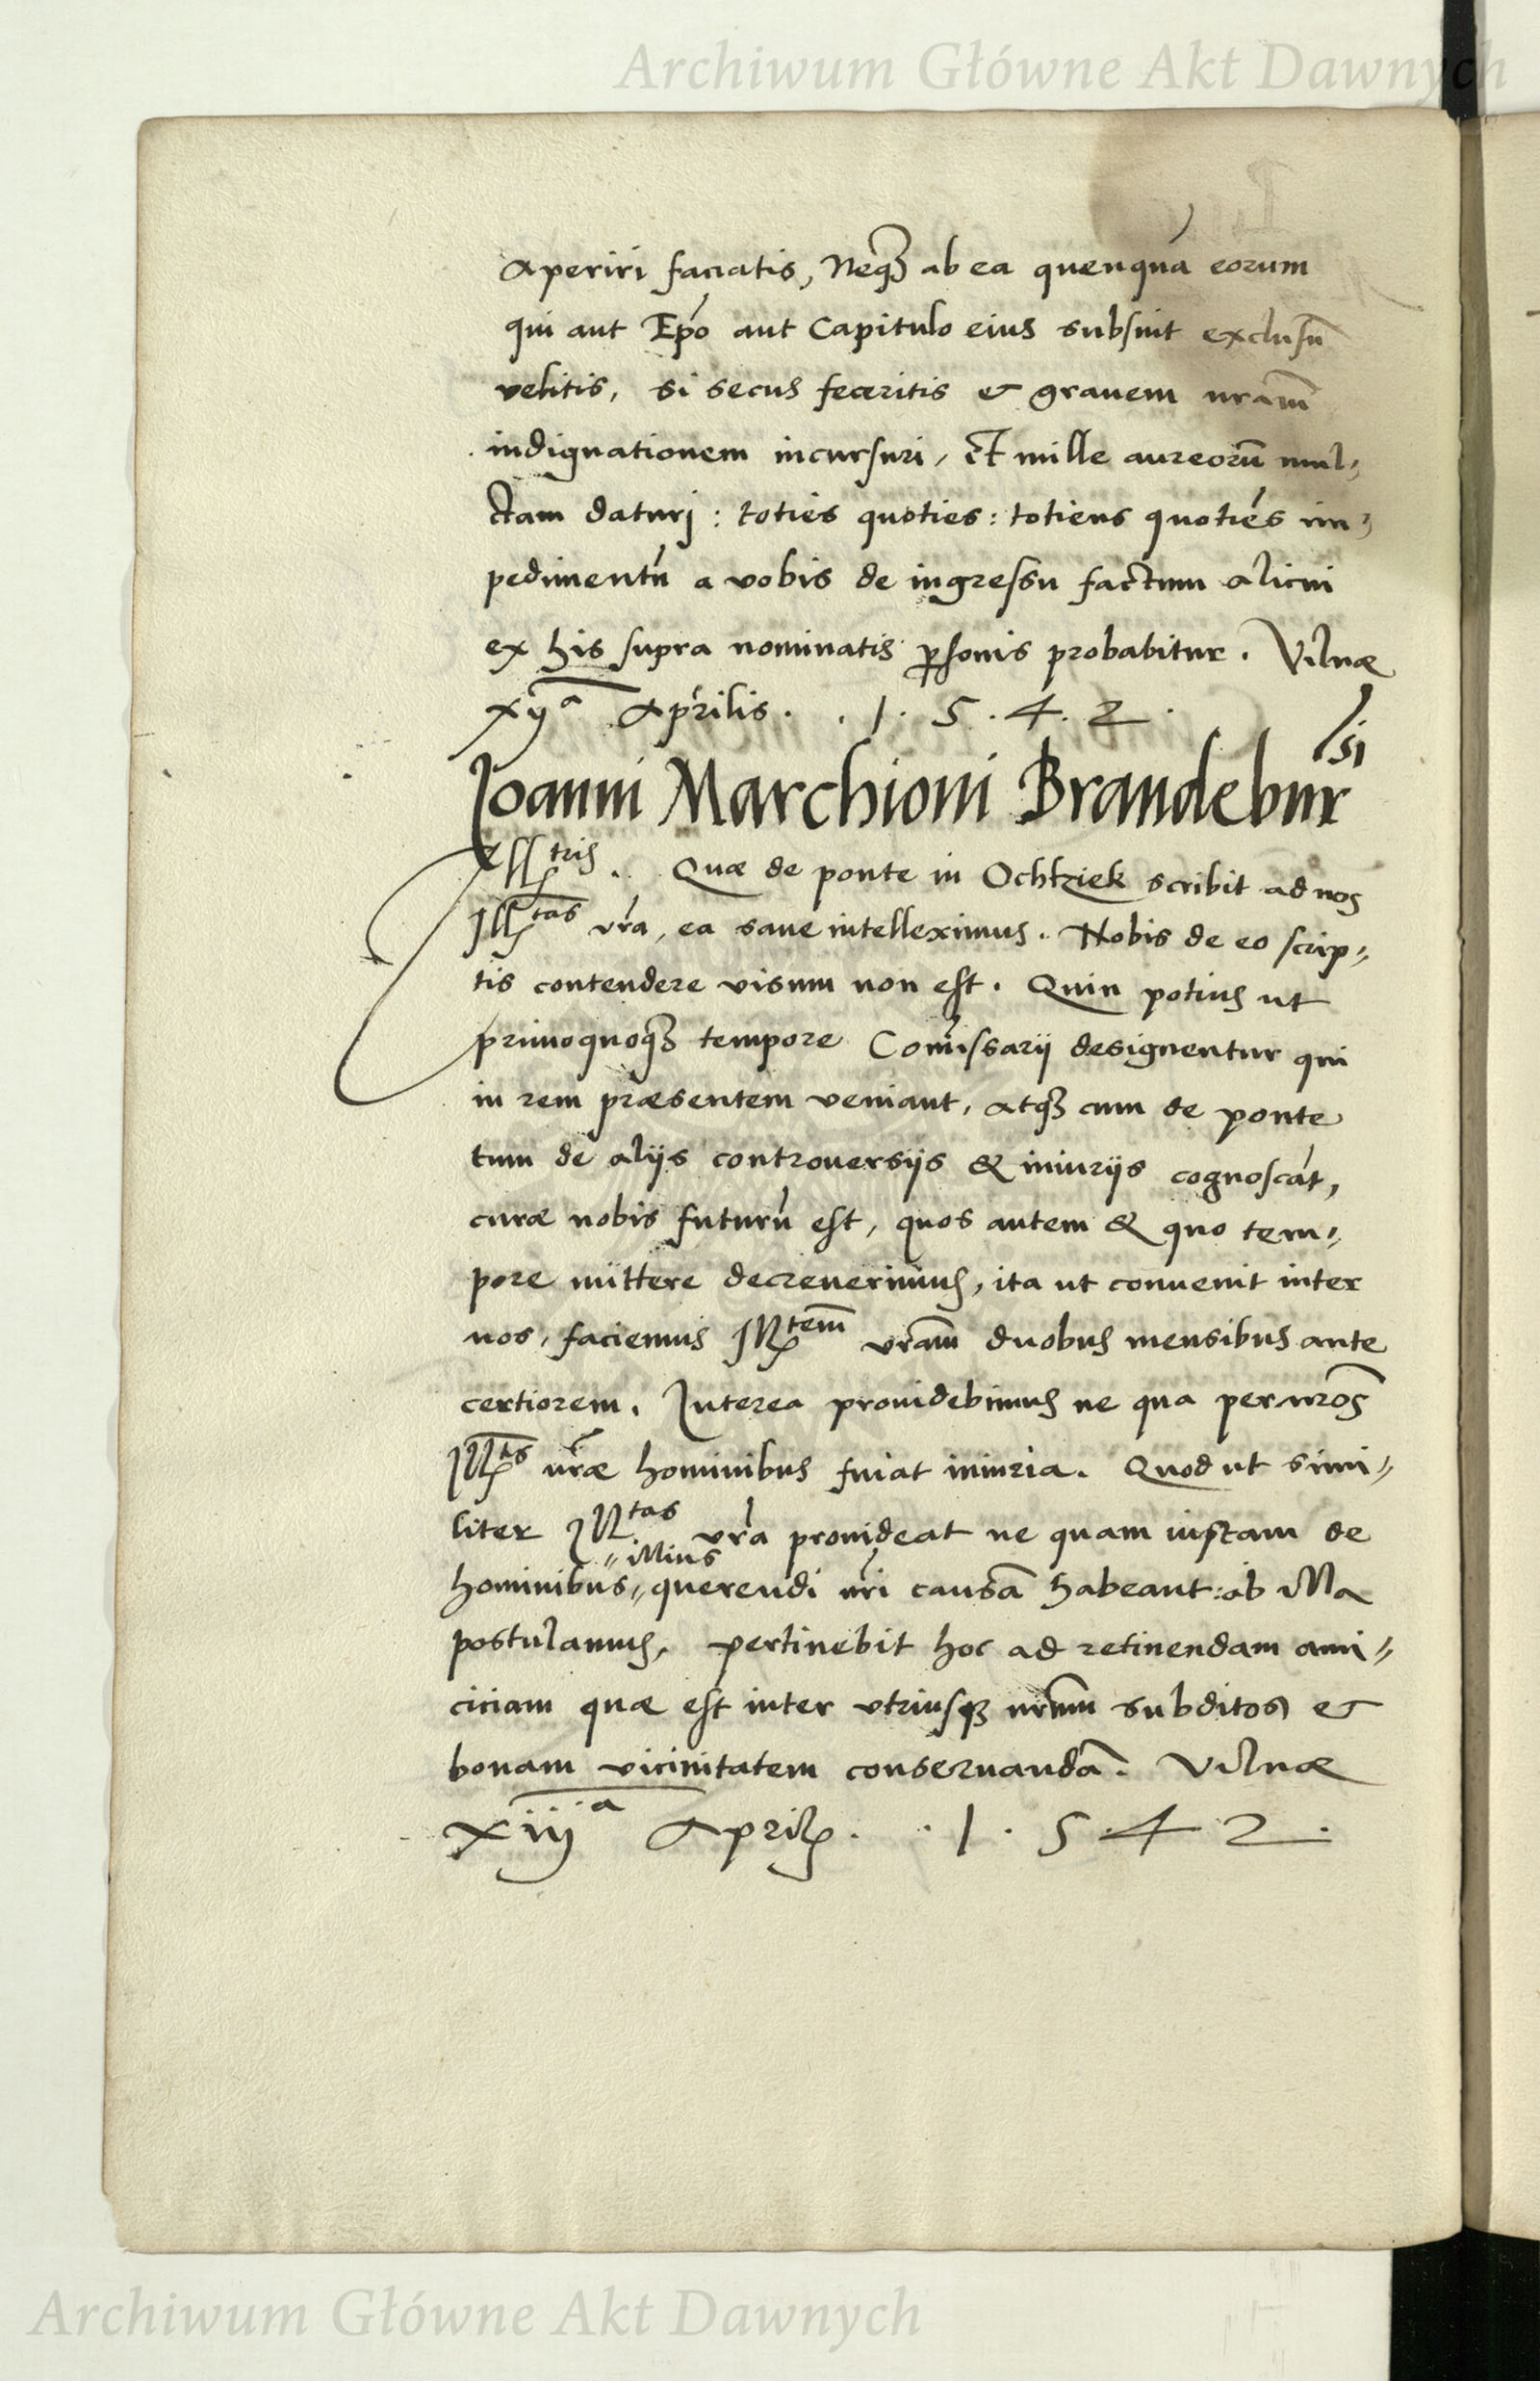 Archiwum Główne Akt Dawnych
Aperiri faciatis, Neq3 ab ea quenquā eorum
qui aut Epo aut Capitulo eius subsint exclusū
velitis, si secus feceritis & grauem nram̄
indignationem incursuri, Et mille aureorū mul„
ctam daturj : toties quoties : totiens quotiēs im„
pedimentū a vobis de ingressu factum alicui
ex his supra nominatis psonis probabitur. Vilnæ
xijᵃ Aprilis. . 1. 5. 4. 2.
Joanni Marchioni Brandebur̄si
Illtris. Quæ de ponte in Ochtziek scribit ad nos
Illtas vra, ea sane intelleximus. Nobis de eo scrip„
tis contendere visum non est. Quin potius ut
primoquoq3 tempore Comissarij designentur qui
in rem præsentem veniant, atq3 cum de ponte
tum de alijs controuersijs & iniurijs cognoscāt,
curæ nobis futurū est, quos autem & quo tem„
pore mittere decreuerimus, ita ut conuenit inter
nos, faciemus Illtem vram̄ duobus mensibus ante
certiorem. Interea prouidebimus ne qua per nros̄
Illtis vræ hominibus fiat iniuria. Quod ut simi„
liter Illtas vra prouideat ne quam iustam de
„illius
hominibus„ querendi nri causā habeant : ab illa
postulamus, pertinebit hoc ad retinendam ami„
ciciam quæ est inter vtriusq3 nrmm subditos &
bonam vicinitatem conseruandā. Vilnæ
xiijᵃ April. . 1. 5. 4 2.
Archiwum Główne Akt Dawnych